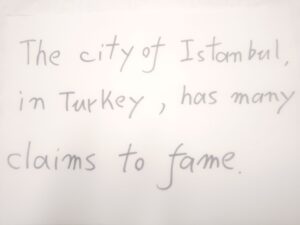 The city of Istanbul,
in Turkey, has many
claims to fame.